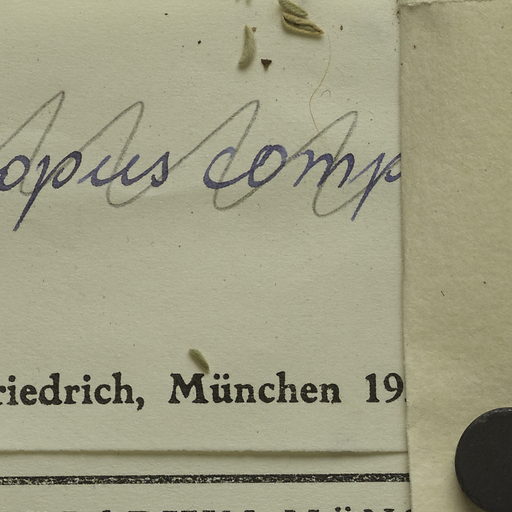 opus comp
riedrich, München 19